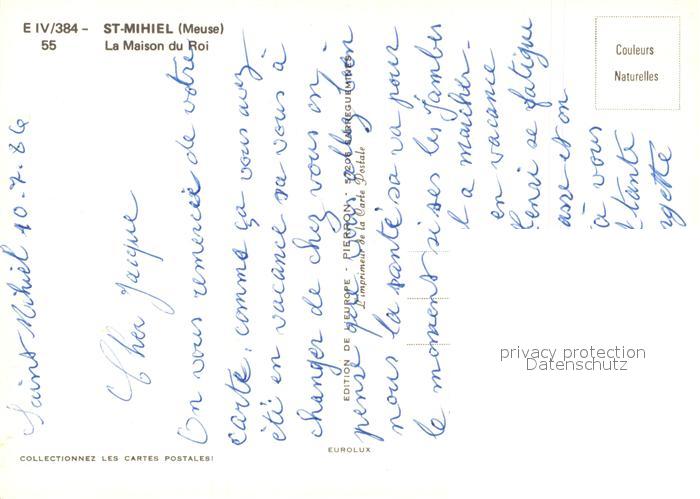 E IV/384 - ST-MIHIEL (Meuse)
55 La Maison du Roi
Couleurs
Naturelles
Saint Mihiel 10-7-86
Cher Jacque
On vous remercie de votre
carte, comme ça vous avez
été en vacance sa vous à
changer de chez vous on
pense que vous allez bon
nous la santé sa va pour
le moment si ses les jambes
a marcher-
en vacance
se fatigue
et on
à vous
tante
EDITION DE L'EUROPE - PIERRON - 57206 SARREGUEMINES
L'imprimeur de la Carte Postale
privacy protection
Datenschutz
EUROLUX
COLLECTIONNEZ LES CARTES POSTALES!